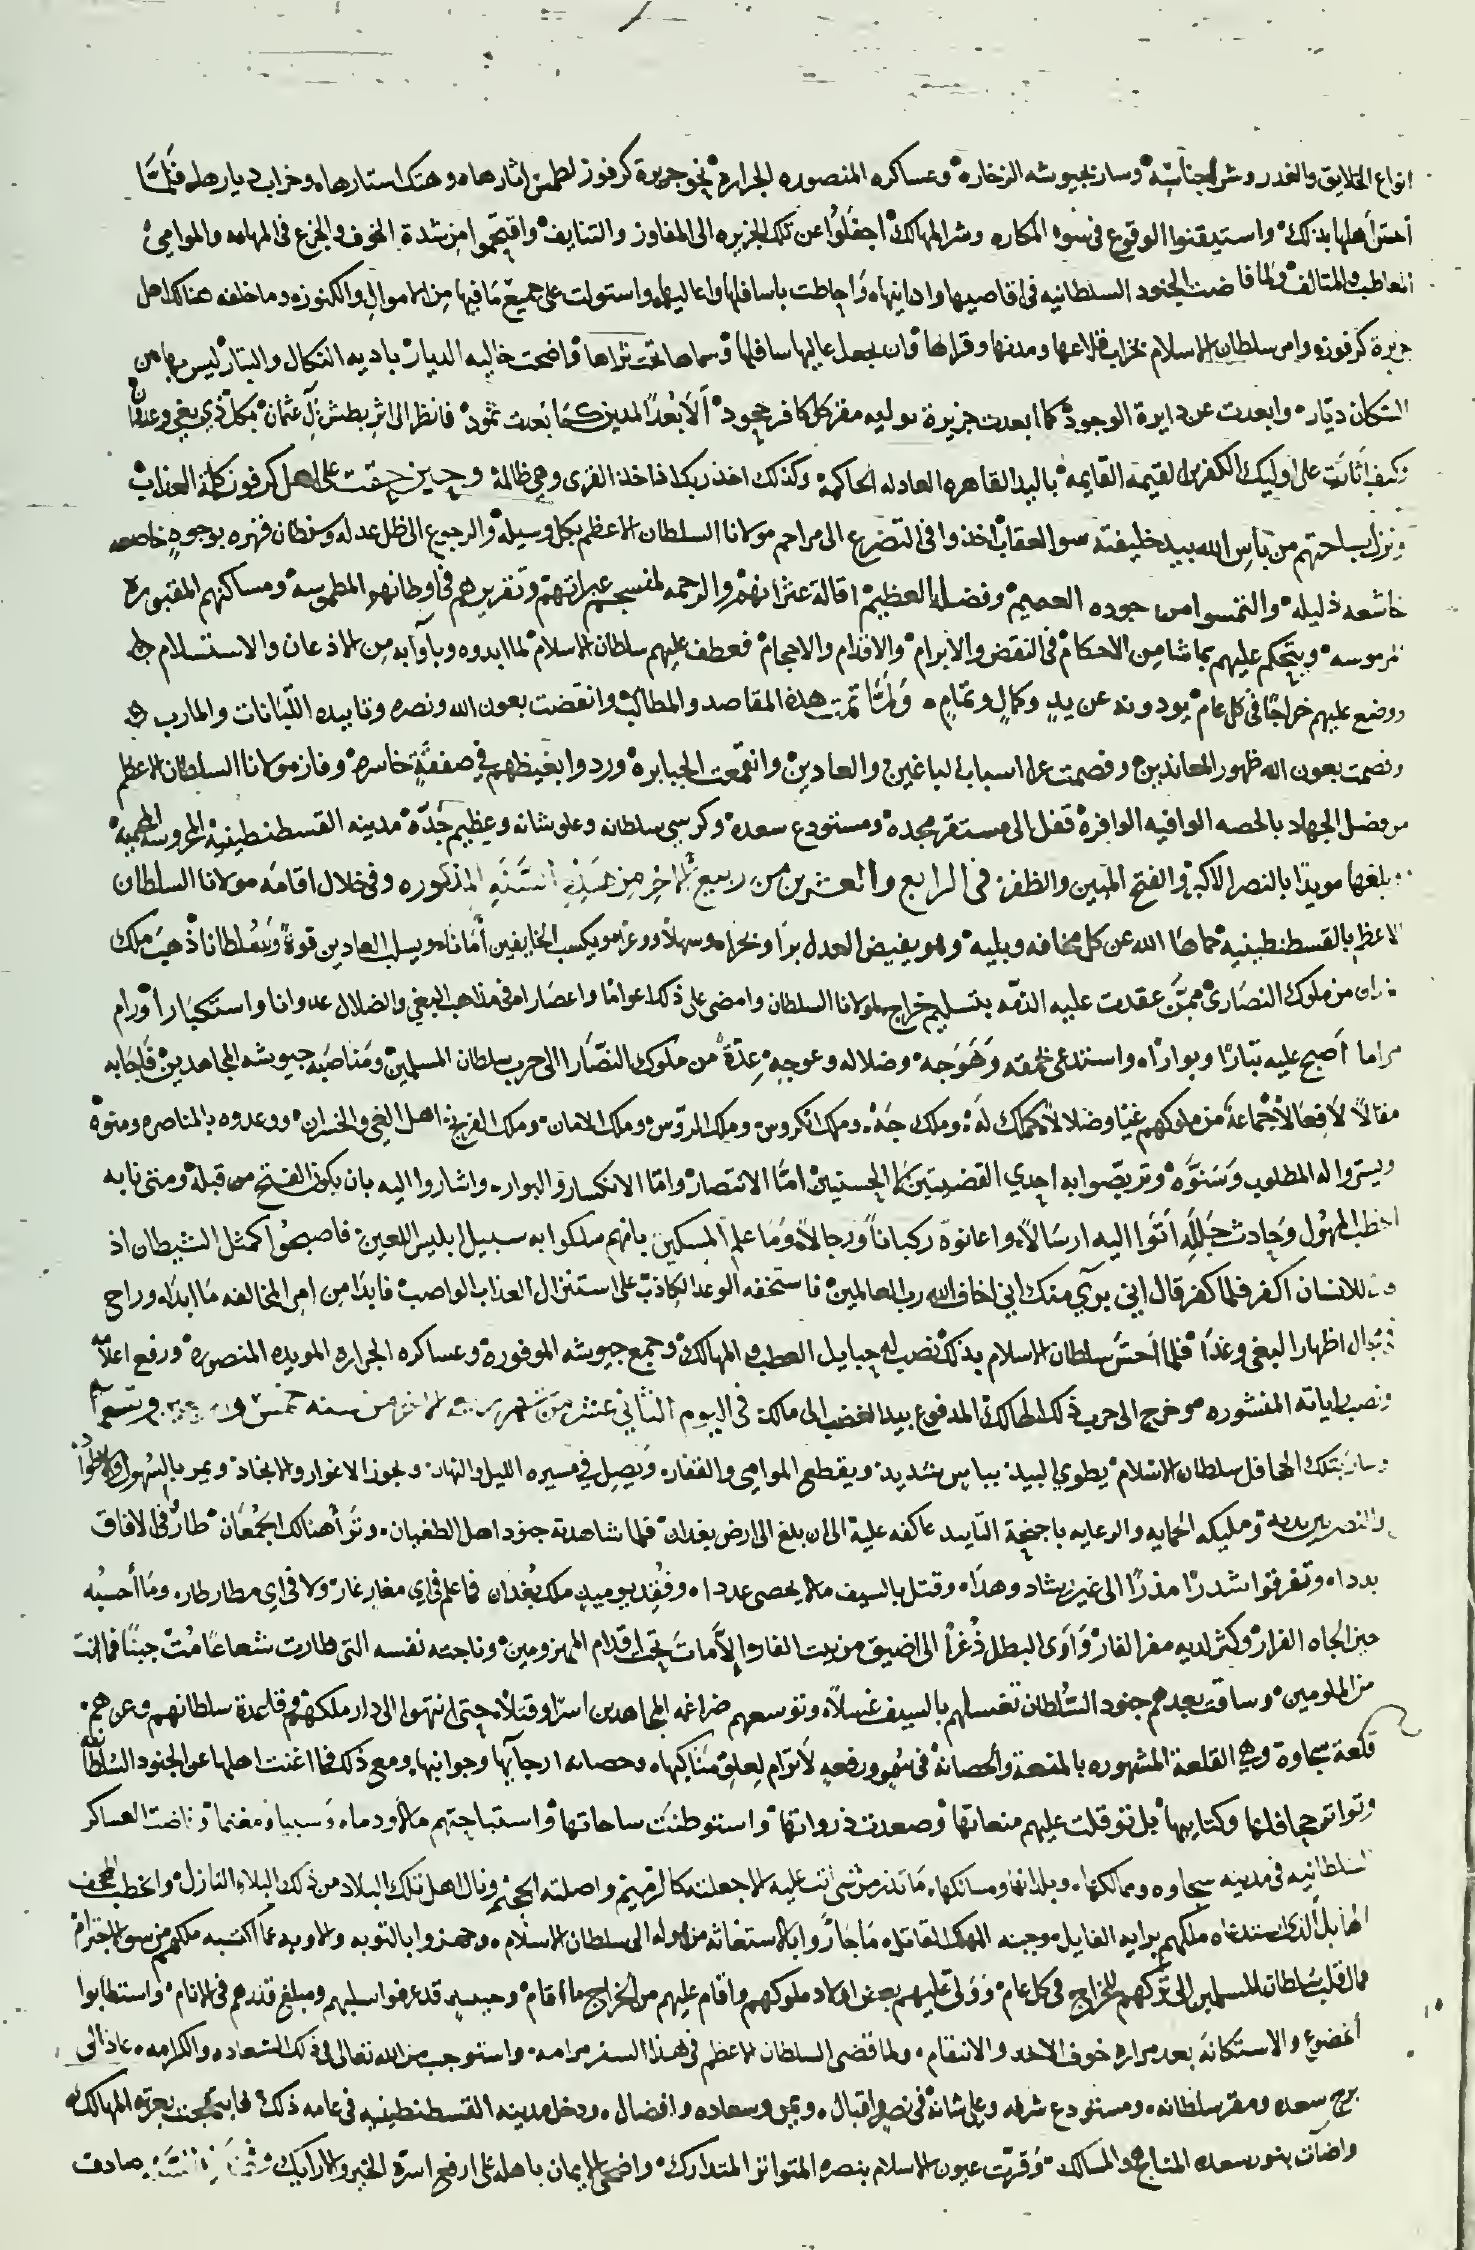 انواع الخلايق والغدر وشر اجناسه وسار بجيوشه الزخاره وعساكره المنصوره الجراره نحو جزيرة كرفوز لطمس اثارها وهتك استارها وخراب ديارها فلما
احس اهلها بذلك واستيقنوا الوقوع فى سوء المكاره وشر المهالك اجفلوا عن تلك الجزيره الى المفاوز والتنايف واقتحموا من شدة الخوف والجزع فى المهامه والموامى
المعاطب والمتالف ولما فاضت الجنود السلطانيه فى اقاصيها وادانيها واحاطت باسافلها واعاليها واستولت على جميع ما فيها من الاموال والكنوز وما خلفه هنالك اهل
جزيرة كرفوز وامر سلطان الاسلام بخراب قلاعها ومدنها وقراها وان يجعل عاليها سافلها وسماها تحت ثراها فاضحت خاليه الديار باديه النكال والتبار ليس بها من
السكان ديار وابعدت عن دايرة الوجود كما ابعدت جزيرة بوليه مقر كل كافر جحود ألا بعدا لمدين كما بعدت ثمود فانظر الى اثر بطش آل عثمان بكل ذي بغي وعدوان
كيف اتت على اوليك الكفره القيمه القايمه باليد القاهره العادله الحاكمه وكذلك اخذ ربك اذا اخذ القرى وهي ظالمة وحين حقت على اهل كرفوز كلمة العذاب
ونزل بساحتهم من باس الله بيد خليفته سو العقاب اخذوا فى التضرع الى مراحم مولانا السلطان الاعظم بكل وسيله والرجوع الى ظل عدله وسلطان قهره بوجوه خاضعه
خاشعه ذليله والتمسوا من جوده العميم وفضله العظيم اقالة عثراتهم والرحمه لمنسجم عبراتهم وتقريرهم فى اوطانهم المطموسه ومساكنهم المقبوره
المرموسه ويتحكم عليهم بما شا من الاحكام فى النقض والابرام والاقدام والاحجام فعطف عليهم سلطان الاسلام لما ابدوه من الاذعان والاستسلام
ووضع عليهم خراجا فى كل عام يودونه عن يد وكمال وتمام ولما تمت هذه المقاصد والمطالب وانقضت بعون الله ونصره وتاييده اللبانات والمارب
وقصمت بعون الله ظهور المعاندين وفصمت عرا اسباب الباغين والعادين وانقمعت الجبابره وردوا بغيظهم في صفقة خاسره وفاز مولانا السلطان الاعظم
من فضل الجهاد بالحصه الوافيه الوافره قفل الى مستقر مجده ومستودع سعده وكرسي سلطانه وعلو شانه وعظيم جده مدينه القسطنطينية المحروسه المحميه
بلغها مويدا بالنصر الاكبر والفتح المبين والظفر فى الرابع والعشرين من ربيع الاخر من هذه السنه المذكوره وفى خلال اقامه مولانا السلطان
الاعظم بالقسطنطينيه حماها الله عن كل مخافه وبليه وهو يفيض العدل برا وبحرا وسهلا ووعرا ويكسب الخايفين أمانا ويسلب العادين قوة وسلطانا ذهب ملك
من ملوك النصارى ممن عقدت عليه الذمه بتسليم خراج لمولانا السلطان وامضى على ذلك اعواما واعصارا فى مذاهب البغي والضلال عدوانا واستكبارا ورام
مراما اصبح عليه تبارا وبوارا واستدعى بحمقه وهوجه وضلاله وعوجه عدة من ملوك النصارا الى حرب سلطان المسلمين ومناصبه جيوشه المجاهدين فاجابه
مقالا لا فعالا جماعة من ملوكهم غيا وضلالا كملك له وملك جه وملك انكروس وملك الروس وملك الامان وملك الفرنج اهل الغي والخسران ووعدوه بالمناصره ومنوه
ويسروا له المطلوب وسنوه وتربصوا به احدي القضيتين الحسنيين اما الانتصار واما الانكسار والبوار واشاروا اليه بان يكون الفتح من قبله ومتى نابه
الخطب المهول وحادث جلل اتوا اليه ارسالا واعانوه ركبانا ورجالا وما علم المسكين بانهم سلكوا به سبيل ابليس اللعين فاصبحوا كمثل الشيطان اذ
قال للانسان اكفر فلما كفر قال اني بري منك اني اخاف الله رب العالمين فاستخفه الوعد الكاذب على استنزال العذاب الواصب فابدا من امر المخالفه ما ابداه وراح
اظهار البغي وغدا فلما احس سلطان الاسلام بذلك نصب له حبايل العطب والمهالك وجمع جيوشه الموفورة وعساكره الجراره المويده المنصوره ورفع اعلامه
ونصب راياته المنشوره وخرج الى حرب ذلك الهالك المدفوع بيد الغضب الى مالك فى اليوم الثاني عشر من شهر ربيع الاخر من سنه خمس وتسعمايه
وسار بتلك الجحافل سلطان الاسلام يطوي البيد بباس شديد ويقطع الموامي والقفار ويصل في مسيره الليل والنهار ويجوز الاغوار والانجاد ويمر بالسهول والاطواد
والنصر بين يديه ومليكه الحمايه والرعايه باجنحة التاييد عاكفه عليه الى ان بلغ الى ارض بغدان فلما شاهدته جنود اهل الطغيان وترأ هنالك الجمعان طاروا فى الافاق
بددا وتفرقوا شذرا مذرا الى غير رشاد وهدا وقتل بالسيف ما لا يحصى عددا وفقد يوميذ ملك بغدان فما علم فى اي مغار غار ولا فى اي مطار طار وما أحسبه
حين الجاه الفرار وكثر لديه مفر الفار وآوى البطل ذعرا الى اضيق من بيت الفار الا مات تحت اقدام المهزومين وناجته نفسه التى طارت شعاعا مت جبنا فما انت
من الملومين وساقت بعدهم جنود السلطان تغسلهم بالسيف غسلا وتوسعهم ضراغمه المجاهدين اسرا وقتلا حتى انتهوا الى دار ملكهم وقاعدة سلطانهم وعزهم
قلعة سجاوة وهي القلعة المشهوره بالمنعة والحصانة فى سمو ورفعه لا ترام لعلو مناكبها وحصانه ارجايها وجوانبها ومع ذلك فما اغنت اهلها عن الجنود السلطانيه
وتواتر جحافلها وكتايبها بل توقلت عليهم منعاتها وصعدت ذرواتها واستوطنت ساحاتها واستباحتهم مالا ودما وسبيا ومغنما وفاضت العساكر
السلطانيه فى مدينه سجاوه وممالكها وبلدانها ومسالكها ما تذر من شى اتت عليه الا جعلته كالرميم واصلته الجحيم ونال اهل تلك البلاد من ذلك البلاء النازل والخطب المجحف
الهابل الذى استدعاه ملكهم برايه الفايل موجبه المهلك القاتل ما جاروا بالاستغاثه من هوله الى سلطان الاسلام وجهزوا بالتوبه والاوبه عما اكتسبه ملكهم من سو الاجترام
فمال قلب سلطان المسلمين الى تركهم للخراج فى كل عام وولى عليهم بعض اولاد ملوكهم واقام عليهم من الخراج ما اقام وحينيذ قد عرفوا سبيلهم ومبلغ قدرهم فى الانام واستطابوا
الخضوع والاستكانه بعد مراره خوف الاخذ والانتقام ولما قضى السلطان الاعظم فى هذا السفر مرامه واستوجب من الله تعالى فى ذلك السعاده والكرامه عاد الى
برج سعده ومقر سلطانه ومستودع شرفه وعلى شانه فى نصر واقبال ويمن وسعاده وافضال ودخل مدينه القسطنطينيه فى عامه ذلك فابتهجت بعزته الممالك
واضات بنور سعده المناهج والمسالك وقرت عيون الاسلام بنصره المتواتر المتدارك واضحى الايمان باهله على ارفع اسرة الخير والارايك صادف